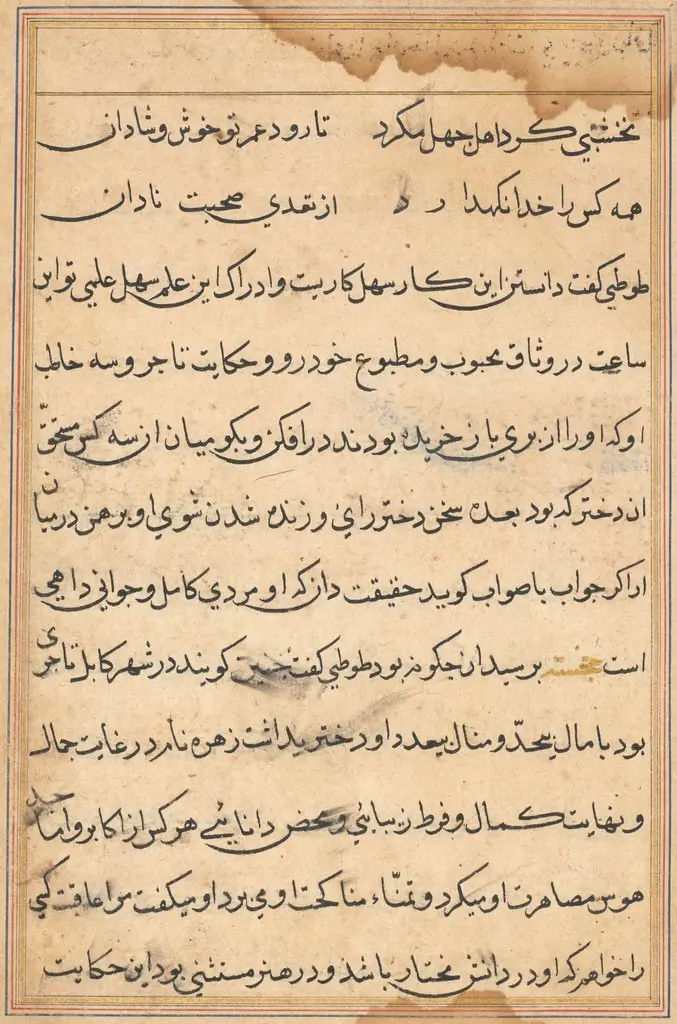 نخشبی کرد اهل جهل مکرد تا رود عمر تو خوش و شادان
همه کس را خدا نکهدا ر د از تعدی صحبت نادان
طوطی کفت دانستن این کار سهل کاریست و ادراک این علم سهل علمی تو این
ساعت در وثاق محبوب و مطبوع خود رو و حکایت تاجر و سه خاطب
او که او را از بری باز خریده بودند در افکن و بکو میان از سه کس مستحقّ
ان دختر که بود بعده سخن دختر رای و زنده شدن شوی او برهمن در میان
ار اکر جواب باصواب کوید حقیقت دان که او مردی کامل و جوانی داهی
است خجسته برسید ان جکونه بود طوطی کفت جنین کویند در شهر کابل تاجری
بود با مال بیحدّ و منال بیعدد او دختری داشت زهره نام در غایت جمال
و نهایت کمال و فرط زیبائی و محض دانائی هر کس از اکابر و اماجد
هوس مصاهرت او میکرد و تمنّاء مناکحت او می برد او میکفت مرا عاقبت کسی
را خواهم که او در دانش مختار باشد و در هنر مستثنی بود این حکایت